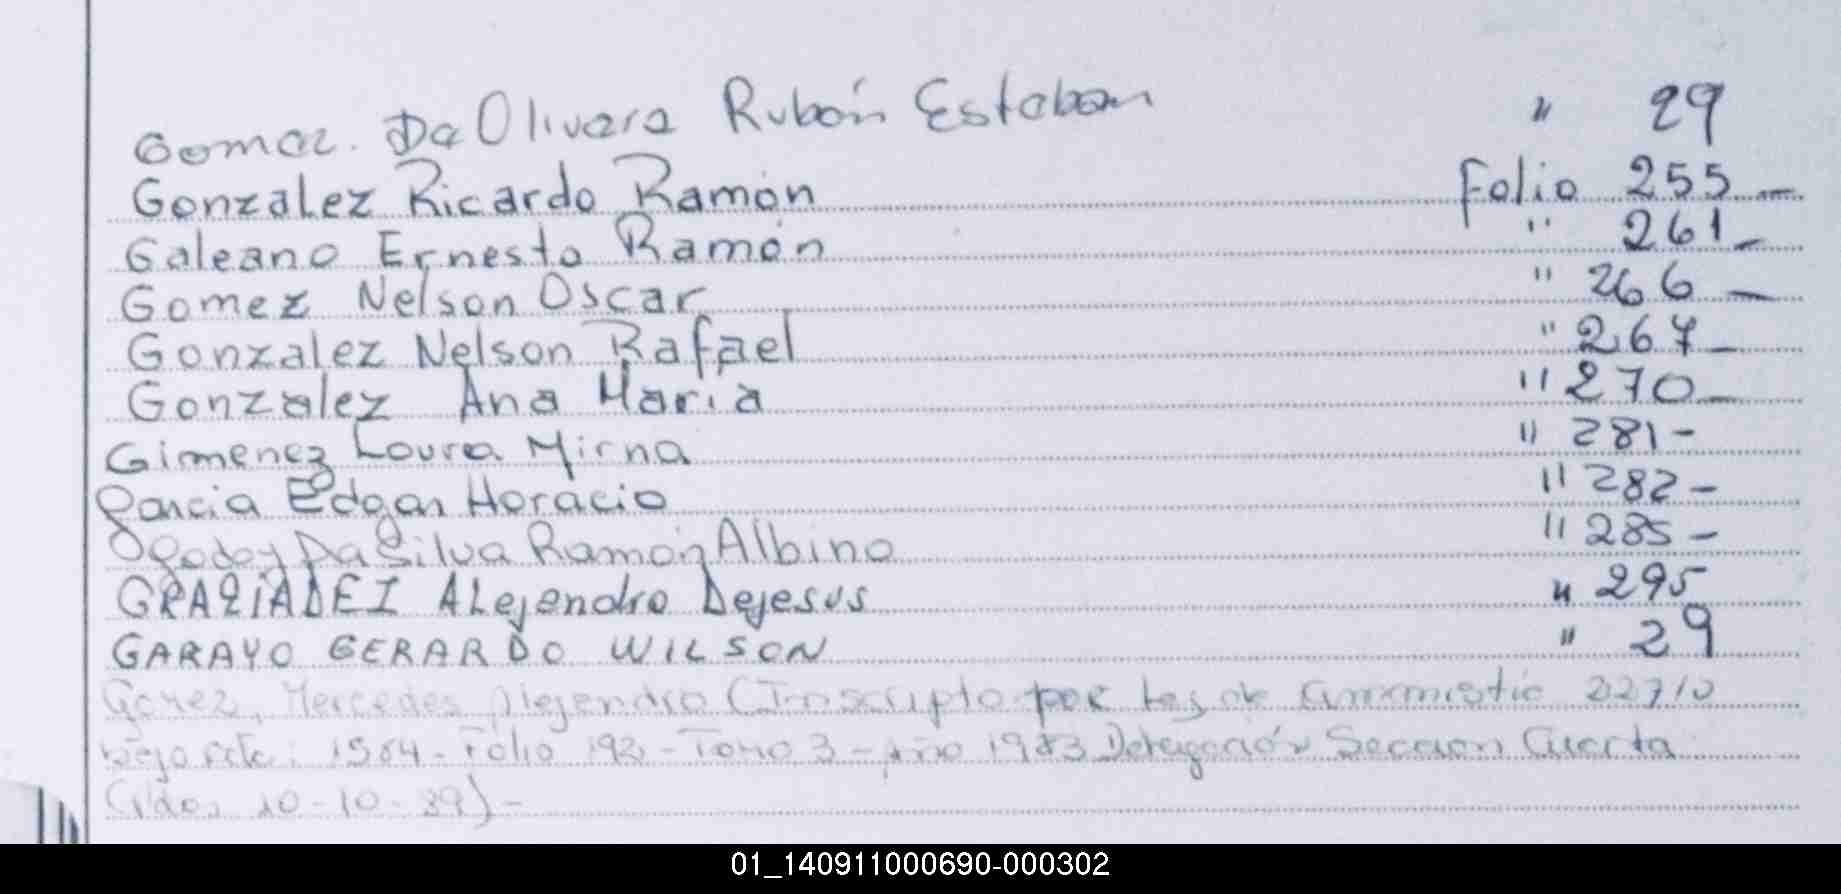 Gomez. Da Olivera Rubén Esteban " 29
Gonzalez Ricardo Ramón Folio 255 —
Galeano Ernesto Ramón " 261 —
Gomez Nelson Oscar " 266 —
Gonzalez Nelson Rafael " 267 —
Gonzalez Ana Maria " 270 —
Gimenez Laura Mirna " 281 -
Garcia Edgar Horacio " 282 -
Godoy Da Silva Ramón Albino " 285 -
GRAZIADEI Alejandro Dejesus " 295
GARAYO GERARDO WILSON " 29
Mercedes Alejandro (Inscripto por Ley de Ammistia 22710
bajo Acta: 1564 - Folio 192 - Tomo 3 - Año 1983 Delegación Seccion Cuarta
10-10-39) -
01_140911000690-000302